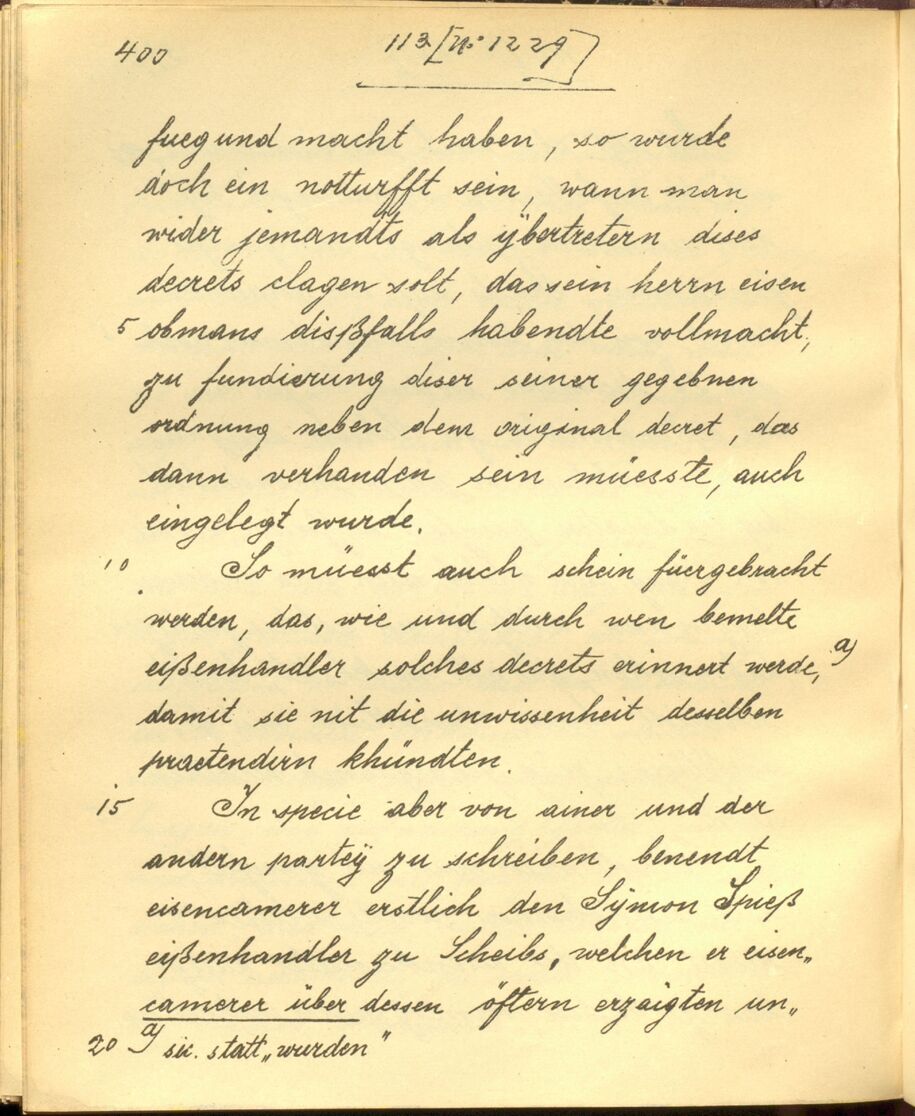 400
113 [No 1229]
fueg und macht haben, so wurde
doch ein notturfft sein, wann man
wider jemandts als ÿbertretern dises
decrets clagen solt, das sein herrn eisen
5 obmans disßfalls habendte vollmacht,
zu fundierung diser seiner gegebnen
ordnung neben dem original decret, das
dann verhanden sein müesste, auch
eingelegt wurde.
10 So müesst auch schein füergebracht
werden, das, wie und durch wen bemelte
eißenhandler solches decrets erinnert werde, a)
damit sie nit die unwissenheit desselben
praetendirn khündten.
15 In specie aber von ainer und der
andern parteÿ zu schreiben, benendt
eisencamerer erstlich den Sÿmon Spieß
eißenhandler zu Scheibs, welchen er eisen„
camerer über dessen öftern erzaigten un„
20 a) sic. statt „wurden"